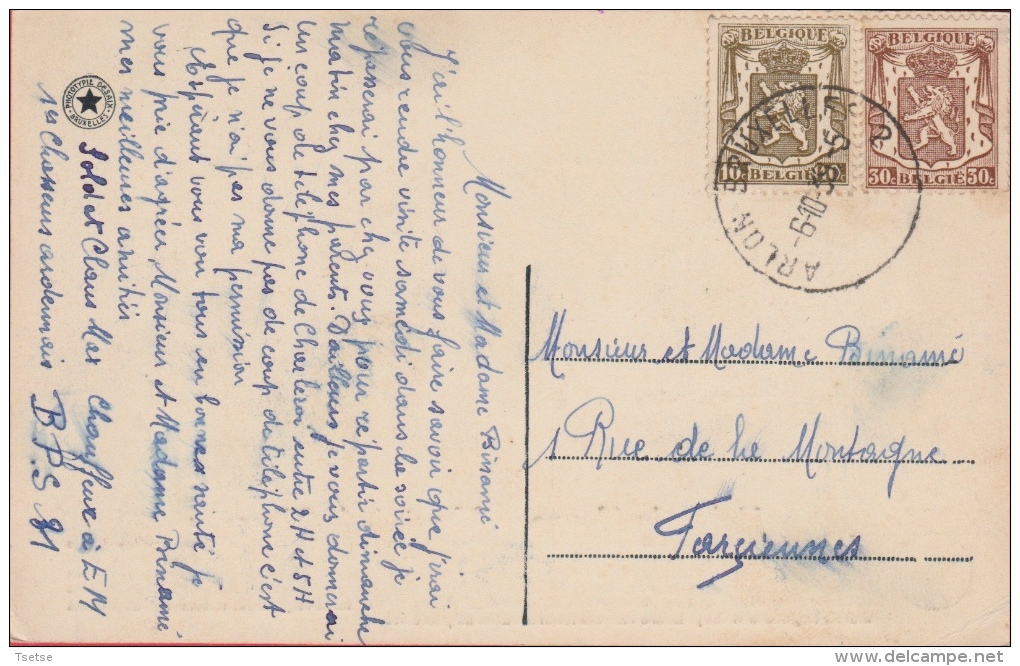 Monsieur et Madame Binamé
J'ai l'honneur de vous faire savoir que j'irai
vous rendre visite samedi dans la soirée je
repasserai par chez vous pour repartir dimanche
matin chez mes parents. D'ailleurs je vous donnerai
un coup de téléphone de Charleroi entre 2H et 5H
Si je ne vous donne pas de coup de téléphone c'est
que je n'ai pas ma permission
Espérant vous voir tous en bonne santé je
vous prie d'agréer, Monsieur et Madame Binamé
mes meilleures amitiés
Soldat Claus Max Chauffeur à E M
1er Chasseurs ardennais B.P.S
PHOTOTYPIE DESAIX
BRUXELLES
BELGIQUE
10c 10c
BELGIË
BELGIQUE
30c 30c
BELGIË
ARLON BRUXELLES 2
-6-10-36
Monsieur et Madame Binamé
1 Rue de la Montagne
Farciennes
Tsetse
delcampe.net